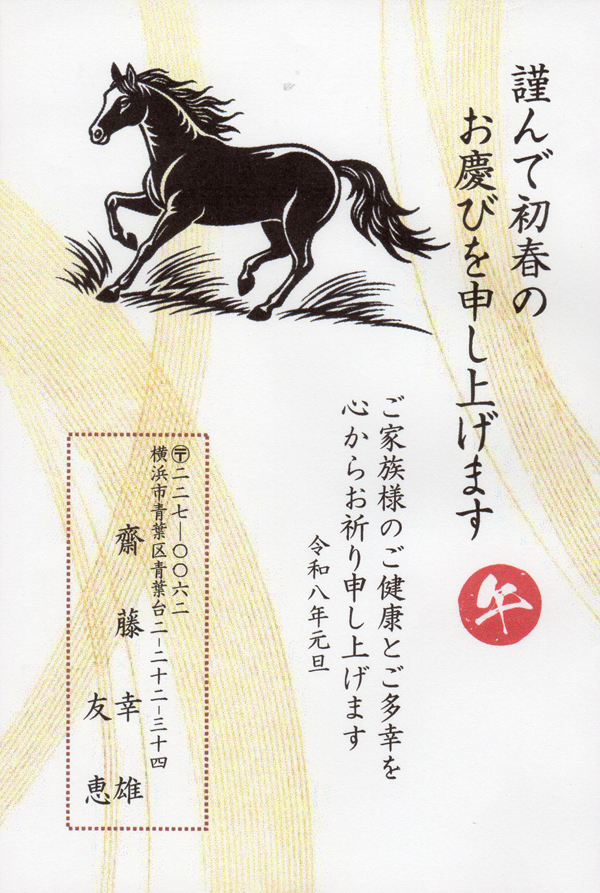 謹んで初春の
お慶びを申し上げます
午
ご家族様のご健康とご多幸を
心からお祈り申し上げます
令和八年元旦
〒二二七―〇〇六二
横浜市青葉区青葉台二―二十二―三十四
齋藤幸雄
友恵